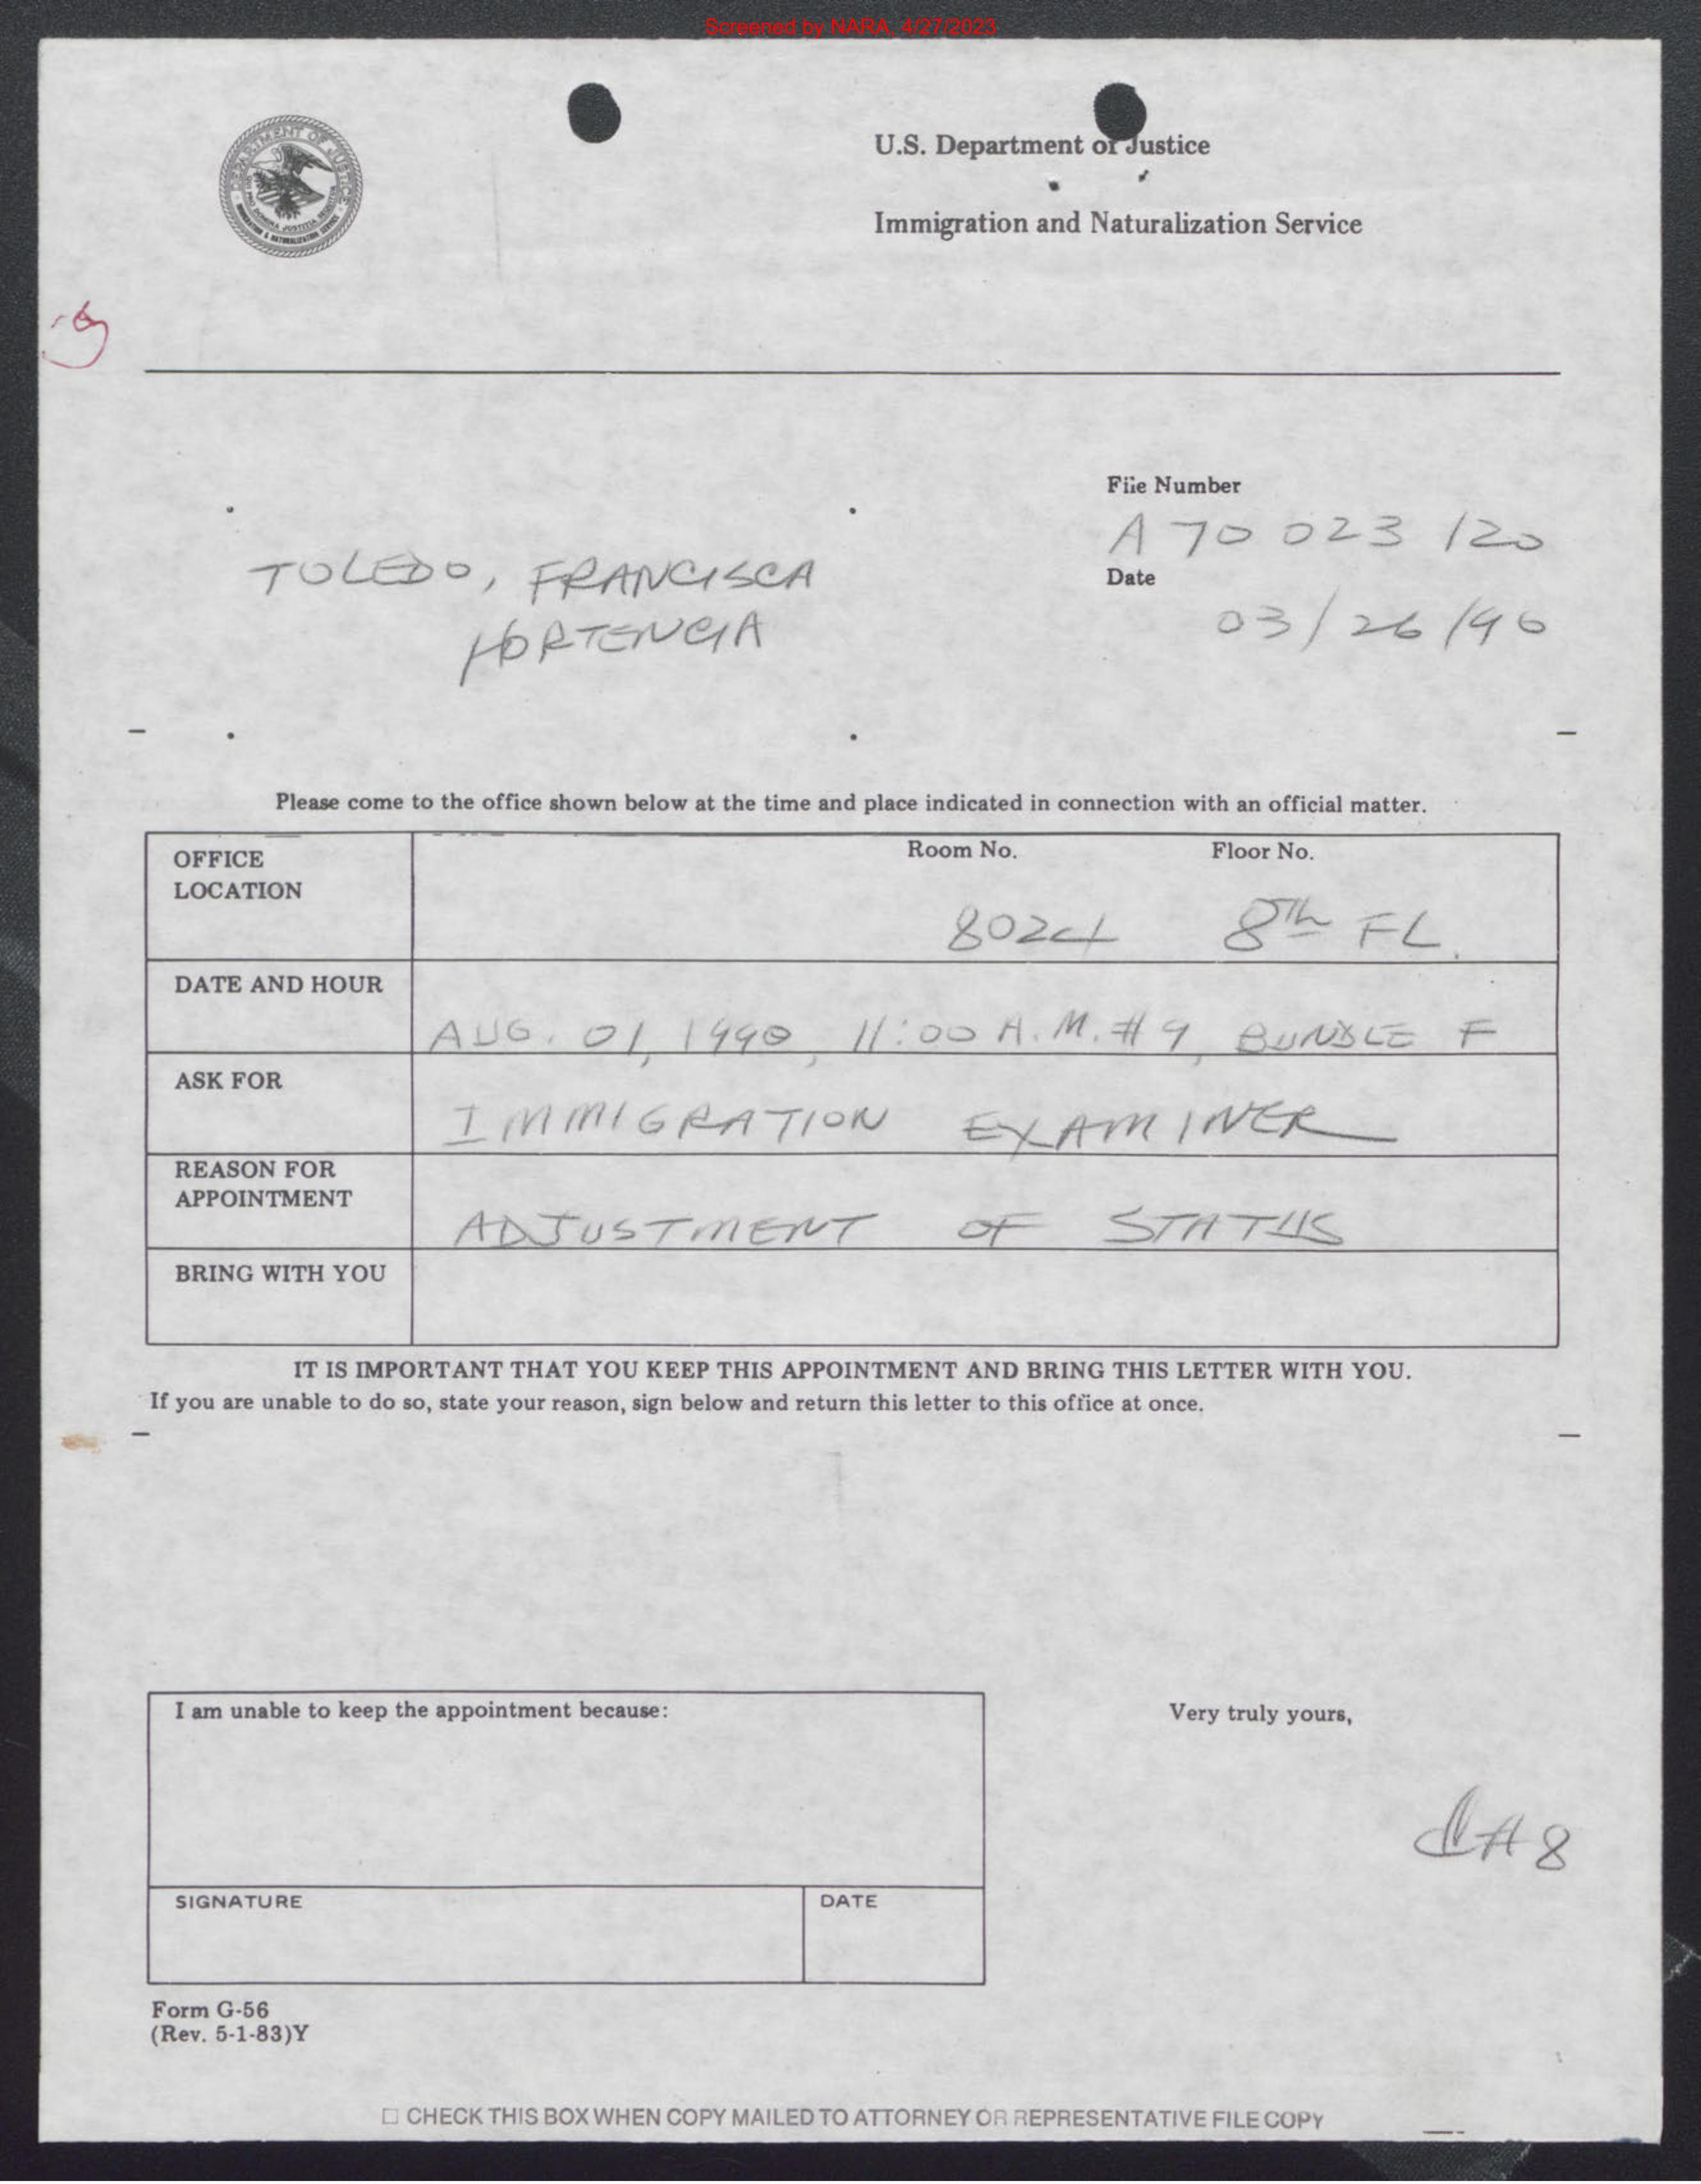 Screened by NARA, 4/27/2023
U.S. Department of Justice
Immigration and Naturalization Service
File Number
A 70 023 120
Date
03/26/90
TOLEDO, FRANCISCA
HORTENCIA
Please come to the office shown below at the time and place indicated in connection with an official matter.
OFFICE
LOCATION
Room No.
Floor No.
8024
8th FL.
DATE AND HOUR
AUG. 01, 1990, 11:00 A.M. #9, BUNDLE F
ASK FOR
IMMIGRATION EXAMINER
REASON FOR
APPOINTMENT
ADJUSTMENT OF STATUS
BRING WITH YOU
IT IS IMPORTANT THAT YOU KEEP THIS APPOINTMENT AND BRING THIS LETTER WITH YOU.
If you are unable to do so, state your reason, sign below and return this letter to this office at once.
I am unable to keep the appointment because:
Very truly yours,
SIGNATURE
DATE
Form G-56
(Rev. 5-1-83)Y
CHECK THIS BOX WHEN COPY MAILED TO ATTORNEY OR REPRESENTATIVE FILE COPY